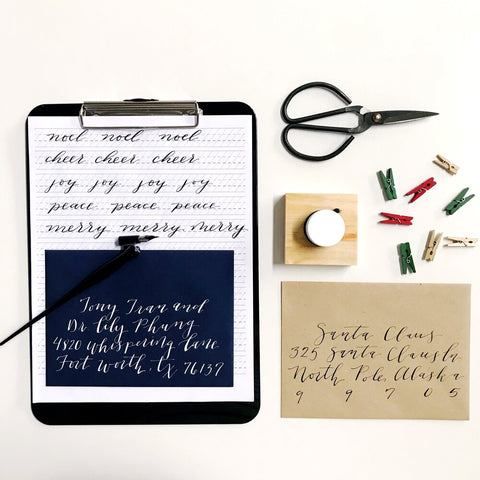 noel noel noel
cheer cheer cheer
joy joy joy joy
peace peace peace
merry merry merry
Tony Tran and
Dr. Lily Phung
4820 Whispering Lane
Fort Worth, TX 76137
Santa Claus
325 Santa Claus Ln
North Pole, Alaska
9 9 7 0 5